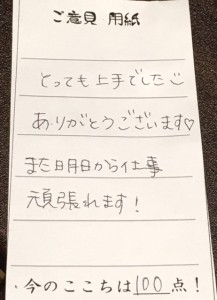 ご意見 用紙
とっても上手でした☺
ありがとうございます♡
また明日から仕事
頑張れます！
今のここちは100点！